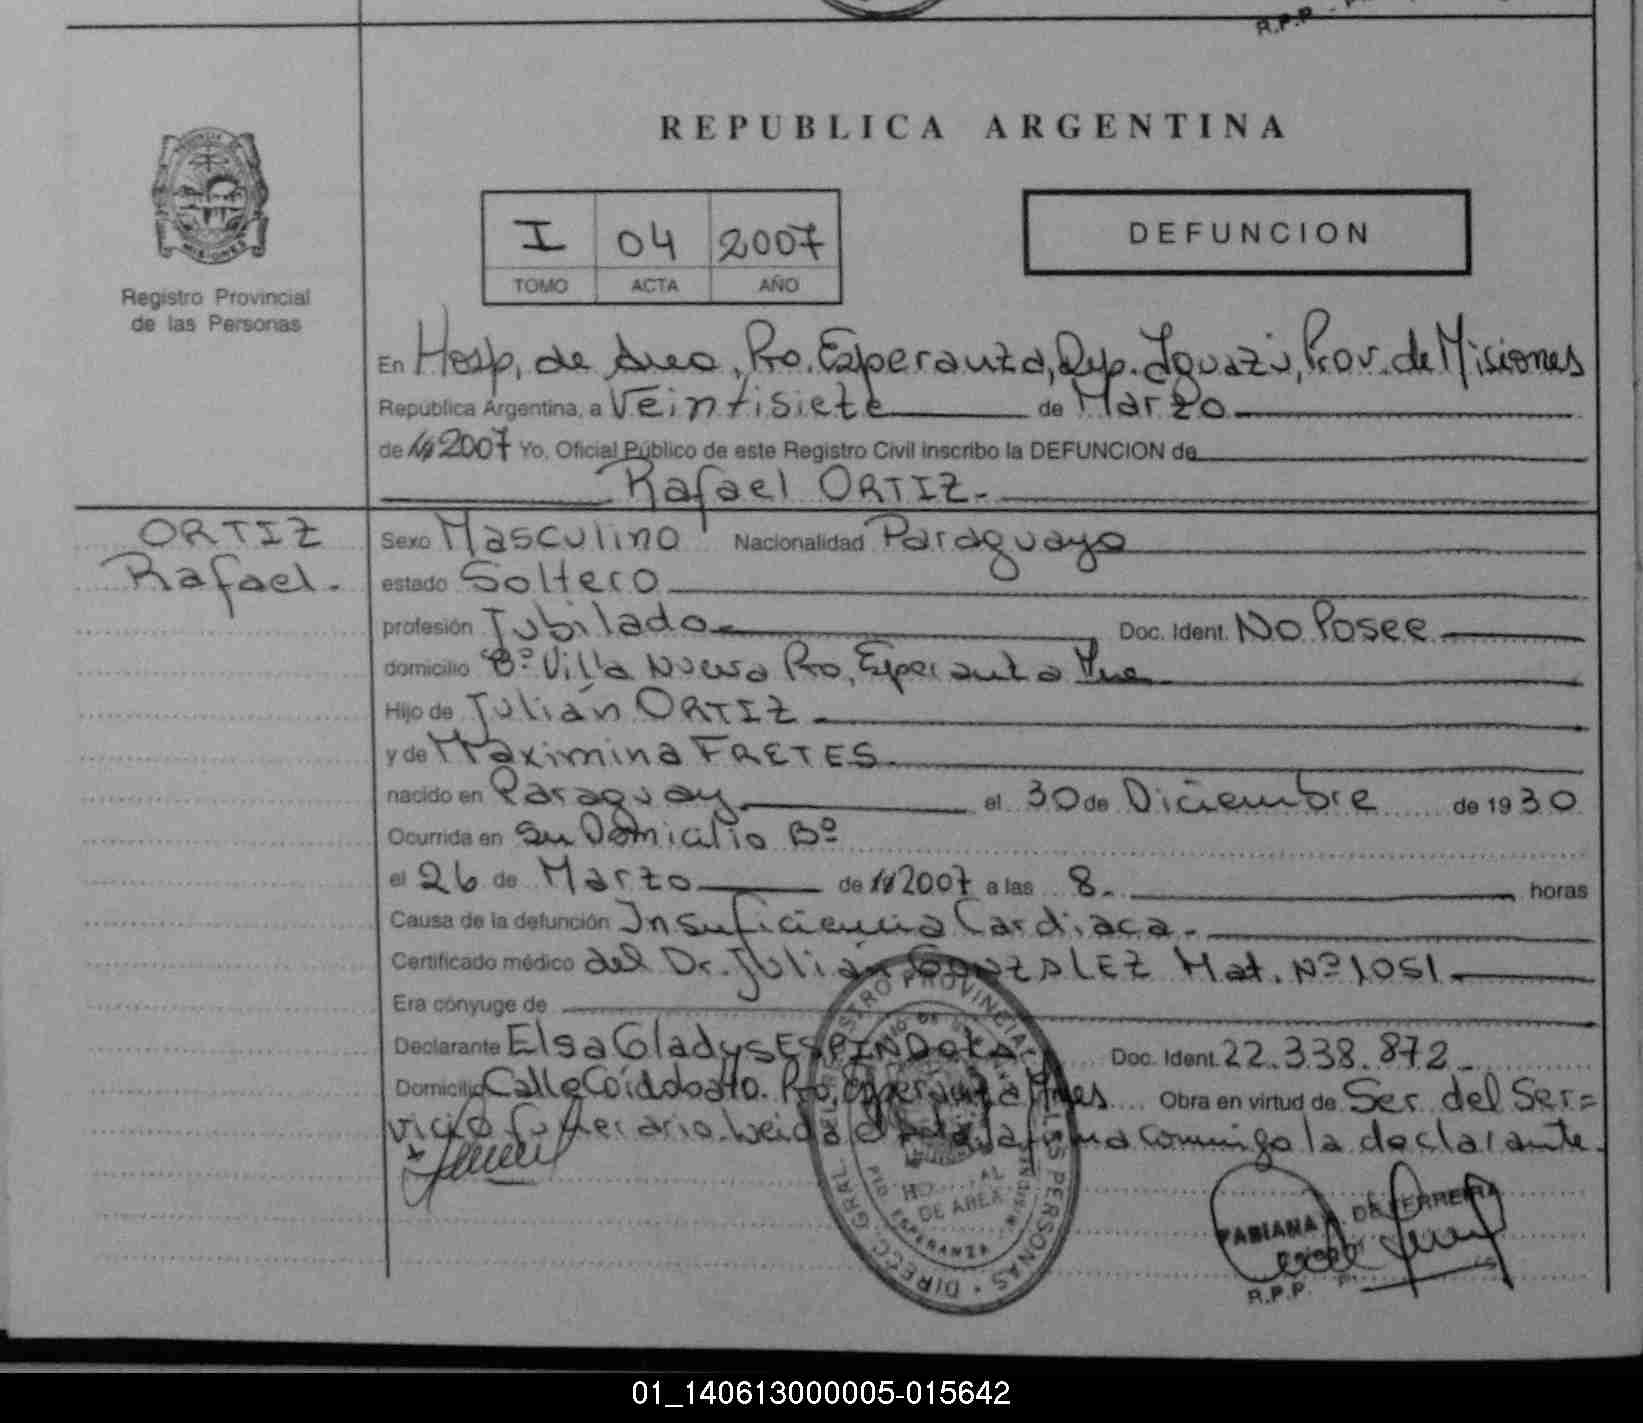 R.P.P.
REPUBLICA ARGENTINA
MISIONES
Registro Provincial
de las Personas
I 04 2007
TOMO ACTA AÑO
DEFUNCION
En Hosp. de Area, Pto. Esperanza, Dep. Iguazú, Prov. de Misiones
República Argentina, a Veintisiete de Marzo
de 19 2007 Yo, Oficial Público de este Registro Civil inscribo la DEFUNCION de
Rafael ORTIZ.-
ORTIZ
Rafael.-
Sexo Masculino Nacionalidad Paraguayo
estado Soltero
profesión Jubilado Doc. Ident. No Posee
domicilio Bº Villa Nueva Pto. Esperanza Mnes
Hijo de Julián ORTIZ
y de Maximina FRETES.
nacido en Paraguay el 30 de Diciembre de 1930
Ocurrida en Su Domicilio Bº
el 26 de Marzo de 19 2007 a las 8.- horas
Causa de la defunción Insuficiencia Cardiaca.-
Certificado médico del Dr. Julián GONZALEZ Mat. Nº 1051
Era cónyuge de
Declarante Elsa Gladys ESPINDOLA Doc. Ident. 22.338.872
Domicilio Calle Pto. Esperanza Mnes Obra en virtud de Ser del Ser=
vicio funerario. Leida el Acta la firma conmigo la declarante.
DIRECC. GRAL. DEL REGISTRO PROVINCIAL DE LAS PERSONAS
DE AREA
ESPERANZA
FABIANA DE FERREIRA
R.P.P.
01_140613000005-015642